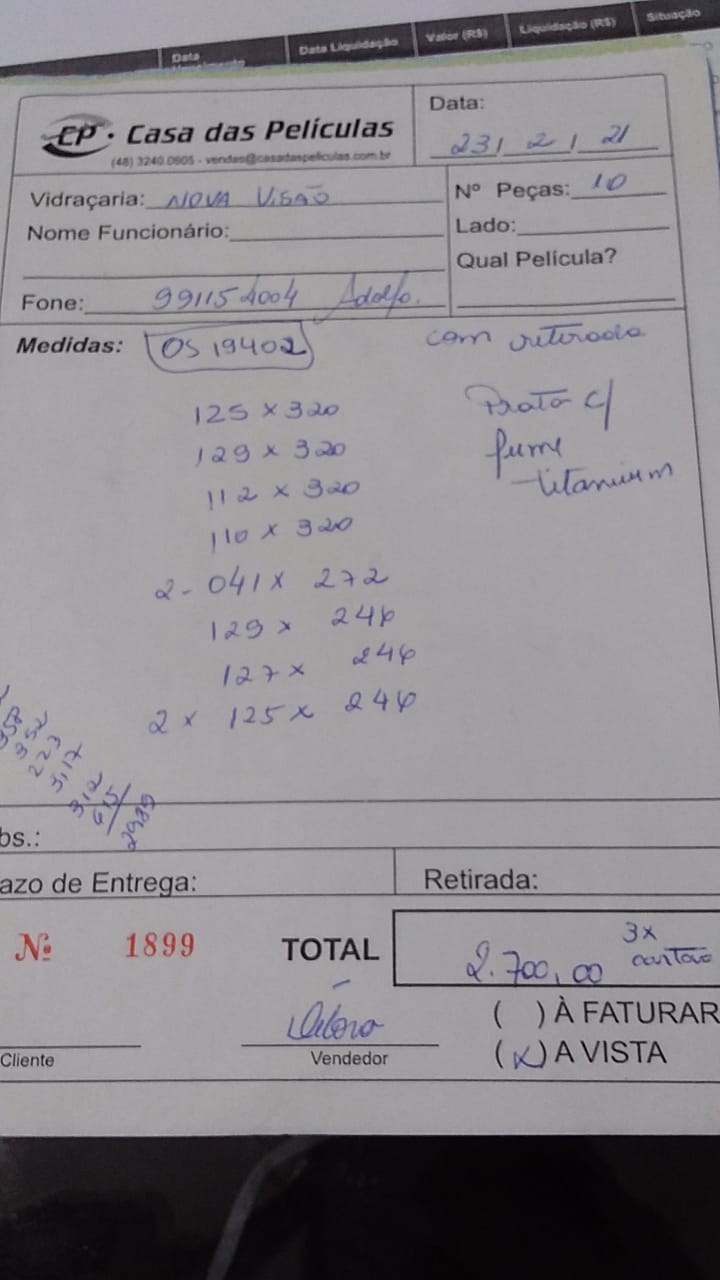 Data Vencimento Data Liquidação Valor (R$) Liquidação (R$) Situação
CP · Casa das Películas
(48) 3240.0605 - vendas@casadaspeliculas.com.br
Data: 23/ 2 / 21
Vidraçaria: NOVA VISÃO
Nº Peças: 10
Nome Funcionário:
Lado:
Qual Película?
Fone: 991154004 Adolfo.
Medidas: OS 19402
com retirada
125 x 320
Prata c/
129 x 320
fume
112 x 320
titanium
110 x 320
2- 041 x 272
129 x 246
127 x 246
2 x 125 x 246
352
223
3,17
312
615/
2989
bs.:
azo de Entrega:
Retirada:
Nº 1899
TOTAL 2.700,00 3x cartão
( ) À FATURAR
(x) A VISTA
Cliente
Vendedor